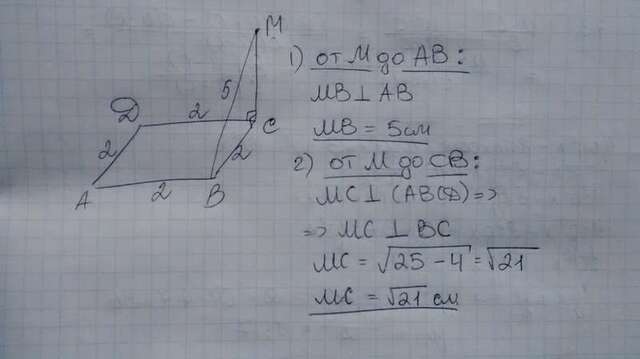 M
5
D
2
C
2
2
A
2
B
1) от M до AB:
MB ⊥ AB
MB = 5 см
2) от M до CB:
MC ⊥ (ABCD) =>
=> MC ⊥ BC
MC = √25 - 4 = √21
MC = √21 см